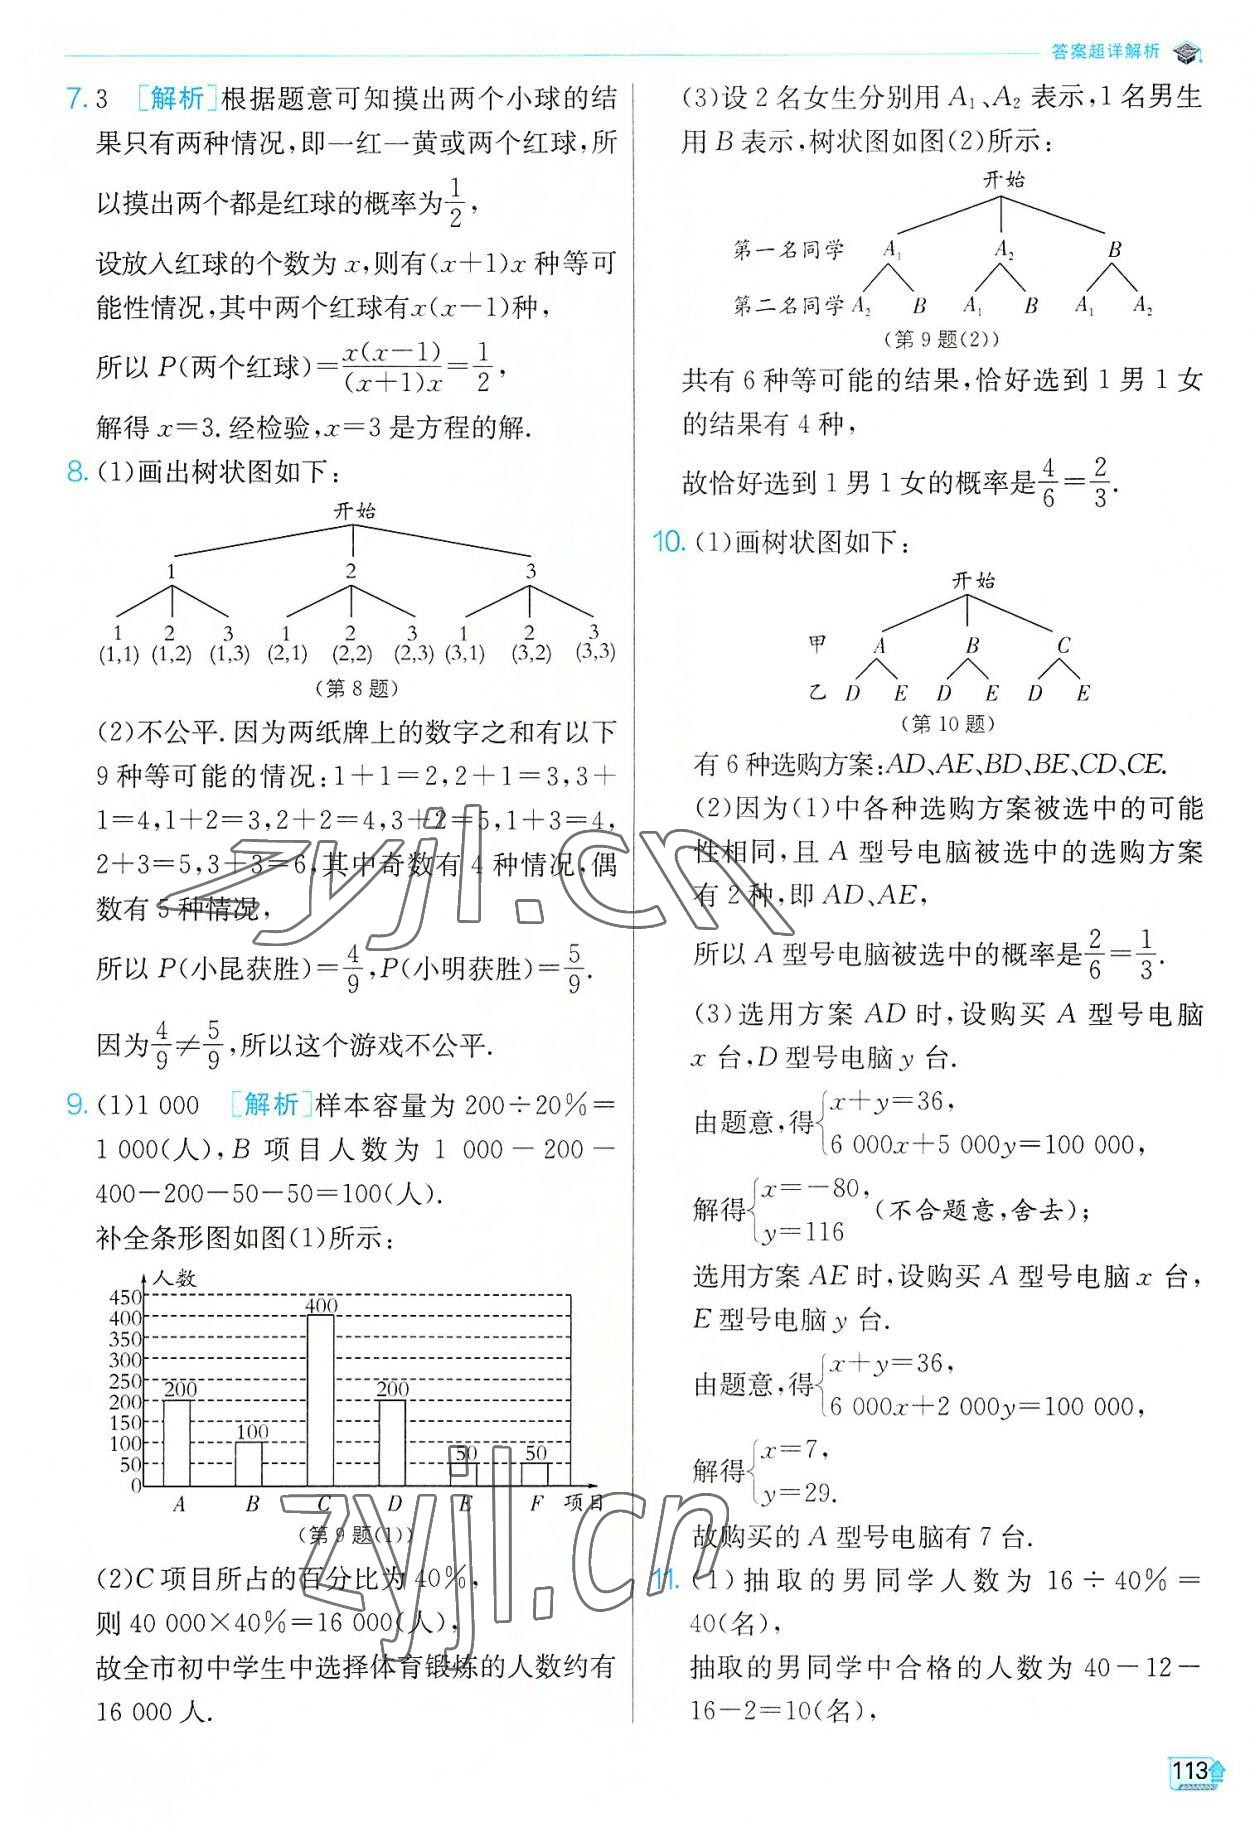 答案超详解析
7. 3 [解析]根据题意可知摸出两个小球的结
果只有两种情况,即一红一黄或两个红球,所
以摸出两个都是红球的概率为1/2,
设放入红球的个数为 x,则有(x+1)x 种等可
能性情况,其中两个红球有x(x-1)种,
所以 P(两个红球)=x(x-1)/(x+1)x=1/2,
解得 x=3. 经检验,x=3 是方程的解.
8. (1)画出树状图如下:
开始
1 2 3
1 2 3 1 2 3 1 2 3
(1,1) (1,2) (1,3) (2,1) (2,2) (2,3) (3,1) (3,2) (3,3)
(第 8 题)
(2)不公平. 因为两纸牌上的数字之和有以下
9 种等可能的情况:1+1=2,2+1=3,3+
1=4,1+2=3,2+2=4,3+2=5,1+3=4,
2+3=5,3+3=6,其中奇数有 4 种情况,偶
数有 5 种情况,
所以 P(小昆获胜)=4/9,P(小明获胜)=5/9.
因为4/9≠5/9,所以这个游戏不公平.
9. (1)1 000 [解析]样本容量为 200÷20%=
1 000(人),B 项目人数为 1 000-200-
400-200-50-50=100(人).
补全条形图如图(1)所示:
人数
450
400
350
300
250
200
150
100
50
0
200 100 400 200 50 50
A B C D E F 项目
(第 9 题(1))
(2)C 项目所占的百分比为 40%,
则 40 000×40%=16 000(人),
故全市初中学生中选择体育锻炼的人数约有
16 000 人.
(3)设 2 名女生分别用 A₁、A₂ 表示,1 名男生
用 B 表示,树状图如图(2)所示:
开始
第一名同学 A₁ A₂ B
第二名同学 A₂ B A₁ B A₁ A₂
(第 9 题(2))
共有 6 种等可能的结果,恰好选到 1 男 1 女
的结果有 4 种,
故恰好选到 1 男 1 女的概率是4/6=2/3.
10. (1)画树状图如下:
开始
甲 A B C
乙 D E D E D E
(第 10 题)
有 6 种选购方案:AD、AE、BD、BE、CD、CE.
(2)因为(1)中各种选购方案被选中的可能
性相同,且 A 型号电脑被选中的选购方案
有 2 种,即 AD、AE,
所以 A 型号电脑被选中的概率是2/6=1/3.
(3)选用方案 AD 时,设购买 A 型号电脑
x 台,D 型号电脑 y 台.
由题意,得{x+y=36,
6 000x+5 000y=100 000,
解得{x=-80,
y=116 (不合题意,舍去);
选用方案 AE 时,设购买 A 型号电脑 x 台,
E 型号电脑 y 台.
由题意,得{x+y=36,
6 000x+2 000y=100 000,
解得{x=7,
y=29.
故购买的 A 型号电脑有 7 台.
11. (1)抽取的男同学人数为 16÷40%=
40(名),
抽取的男同学中合格的人数为 40-12-
16-2=10(名),
113
zyjl.cn
zyjl.cn